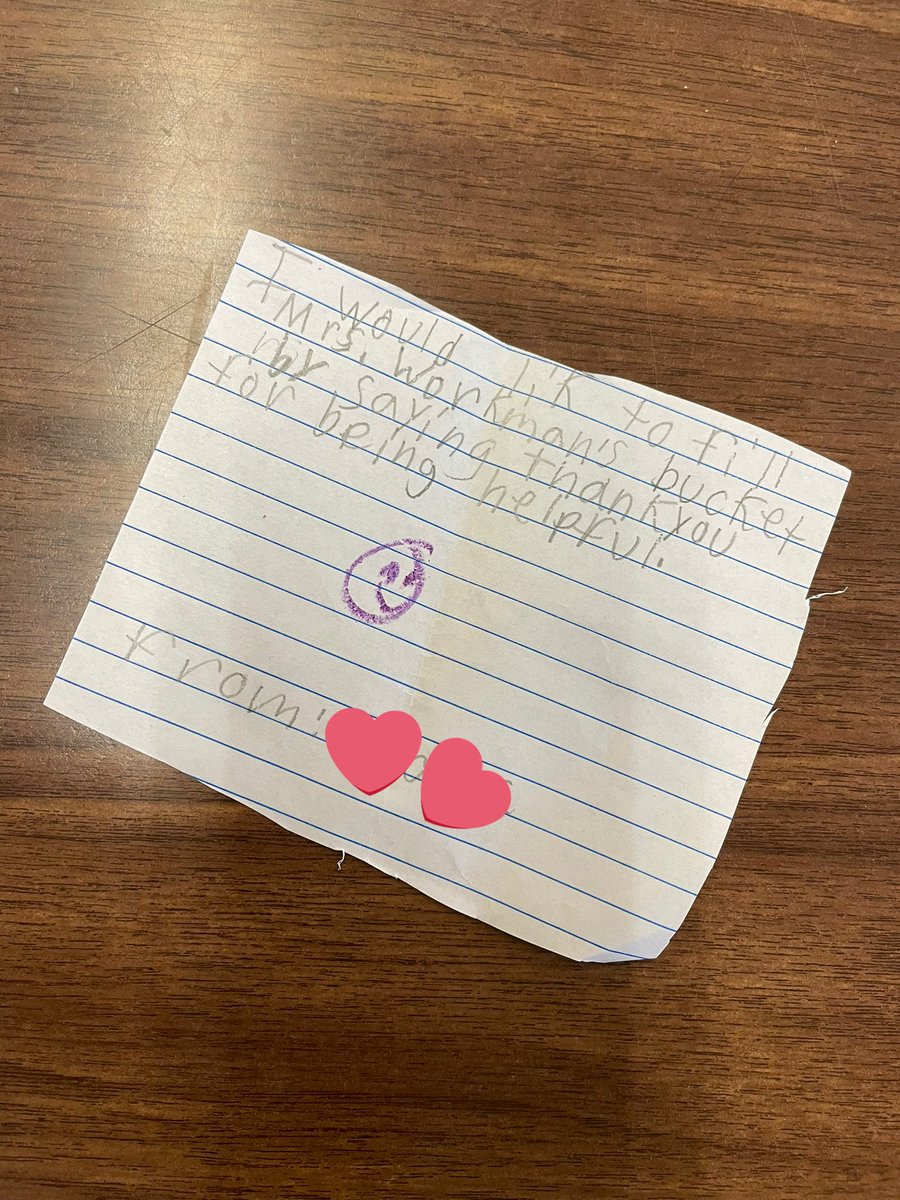 I would lik to fill
Mrs. Workman's bucket
by saying thankyou
for being helpful.
From: